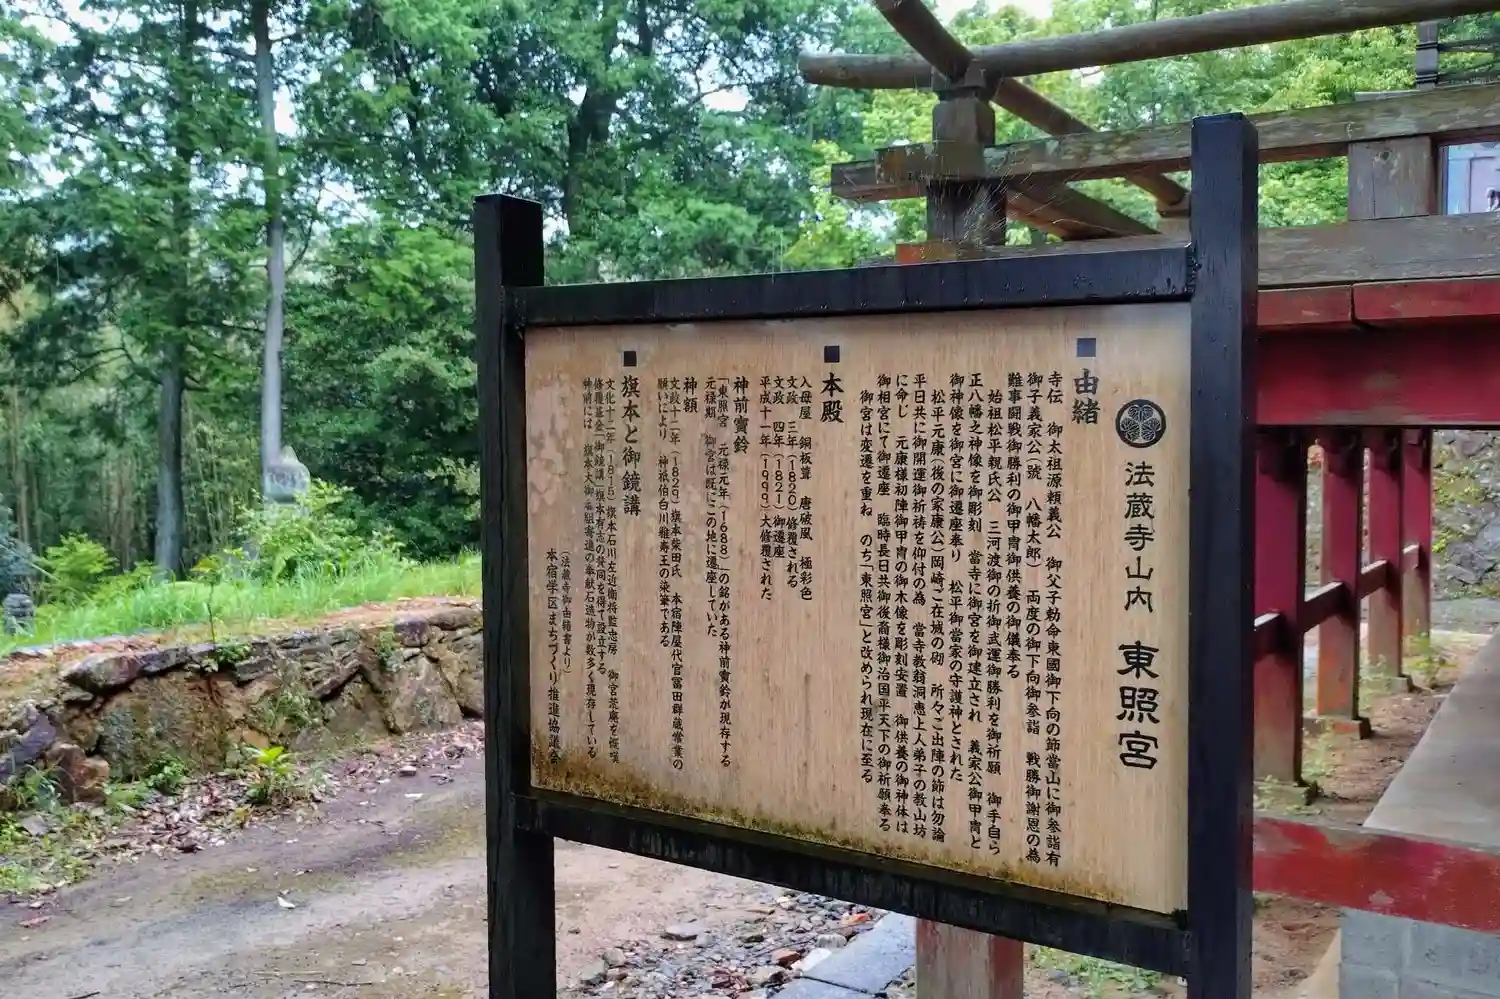 法蔵寺山内 東照宮
■由緒
寺伝 御太祖源頼義公 御父子勅命東國御下向の節當山に御参詣有
御子義家公(號 八幡太郎) 両度の御下向御参詣 戦勝御謝恩の為
難事闘戦御勝利の御甲冑御供養の御儀奉る
始祖松平親氏公 三河渡御の折御武運御勝利を御祈願 御手自ら
正八幡之神像を御彫刻 當寺に御宮を御建立され 義家公御甲冑と
御神像を御宮に御遷座奉り 松平御當家の守護神とされた
松平元康(後の家康公)岡崎ご在城の砌 所々ご出陣の節は勿論
平日共に御開運御祈祷を仰付の為 當寺教翁洞恵上人弟子の教山坊
に命じ 元康様初陣御甲冑の御木像を彫刻安置 御供養の御神体は
御相宮にて御遷座 臨時長日共御後裔様御治国平天下の御祈願奉る
御宮は変遷を重ね のち「東照宮」と改められ現在に至る
■本殿
入母屋 銅板葺 唐破風 極彩色
文政 三年(1820)修覆される
文政 四年(1821)御遷座
平成十一年(1999)大修覆された
神前寳鈴
「東照宮 元禄元年(1688)」の銘がある神前寳鈴が現存する
元禄期 御宮は既にこの地に遷座していた
神額
文政十二年(1829)旗本柴田氏 本宿陣屋代官冨田群蔵常業の
願いにより 神祇伯白川雅寿王の染筆である
■旗本と御鏡講
文化十二年(1815)旗本石川左近衛将監忠房 御宮荒廃を慨嘆
修覆基金「御鏡講」旗本有志の賛同を得て設立する
神前には 旗本大御番組寄進の奉献石造物が数多く現存している
(法蔵寺御由緒書より)
本宿学区まちづくり推進協議会